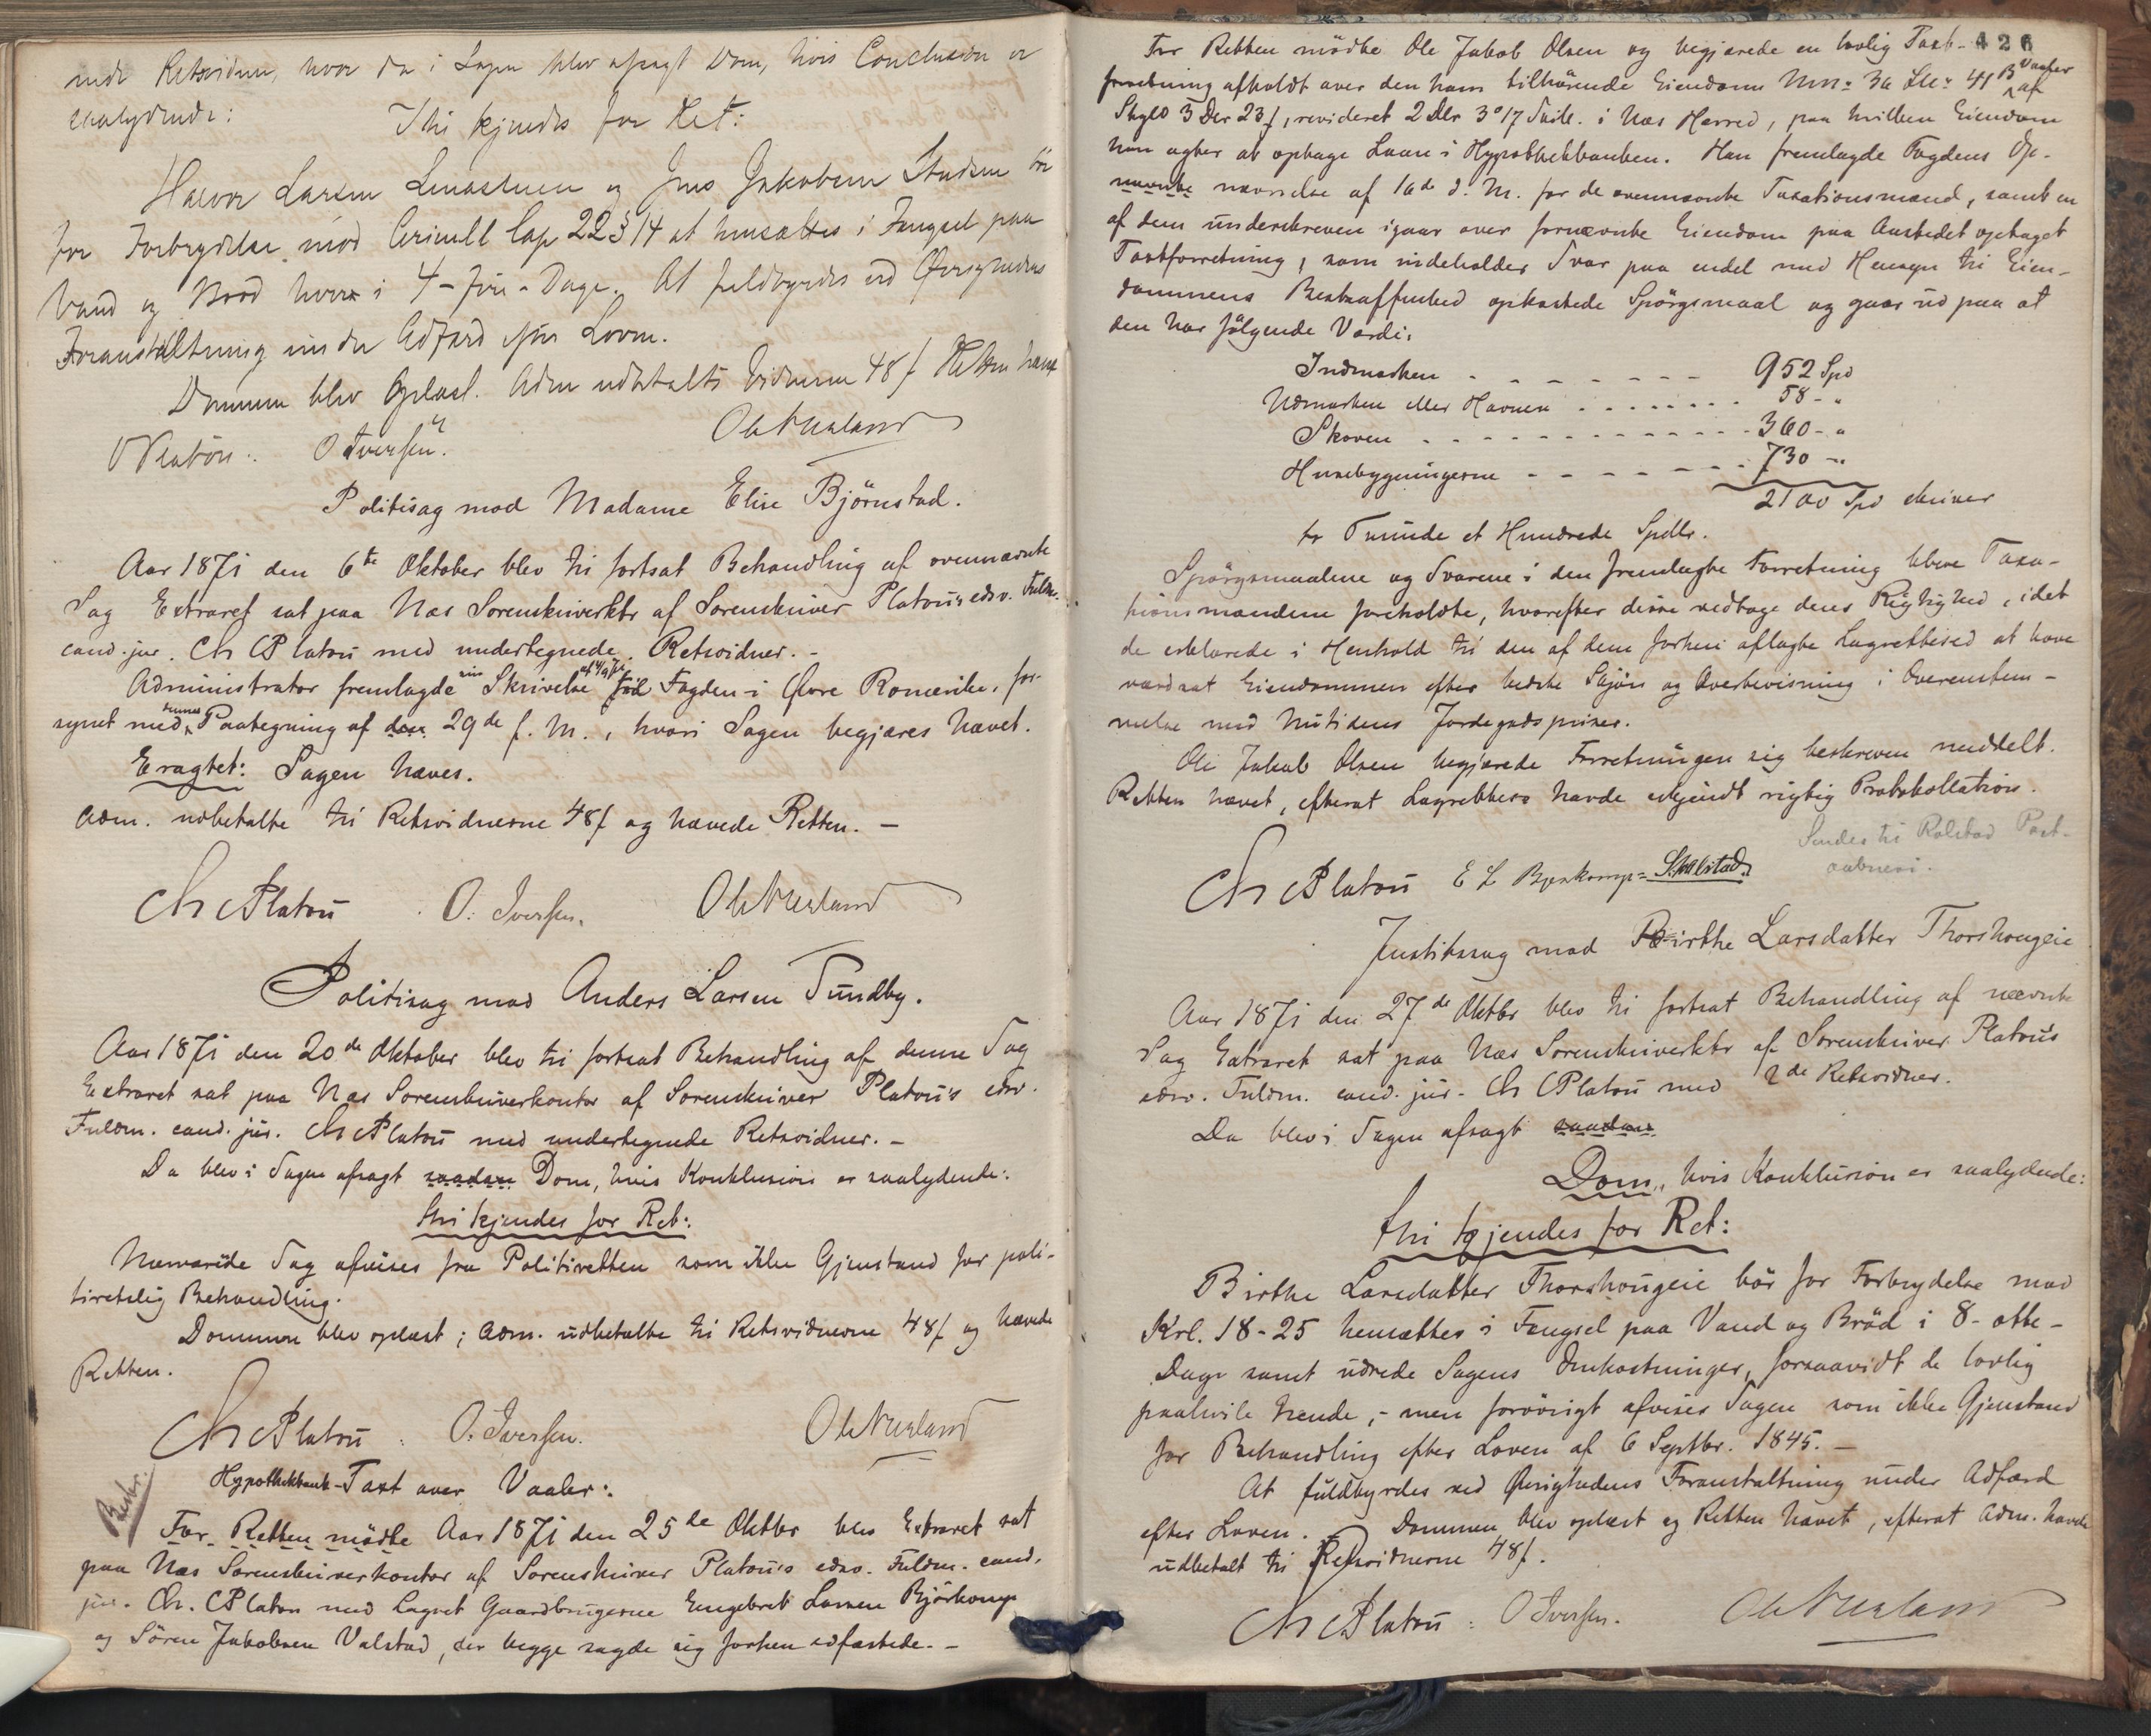 nede Retsvidner, hvor da i Sagen blev afsagt Dom, hvis Conclusion er
saalydende:
Thi kjendes for Ret:
Halvor Larsen og Jens Jakobsen bör
for Forbrydelse mod Criminll Cap 22 § 14 at hensættes i Fængsel paa
Vand og Bröd hver i 4 - fire - Dage. At fuldbyrdes ved Övrighedens
Foranstaltning under Adfærd efter Loven.
Dommen blev oplæst. Adm udbetalte Vidnerne 48 f Retten hævet
Platou. O Iversen. Ole Nusland
Politisag mod Madame Elise Björnstad.
Aar 1871 den 6te Oktober blev til fortsat Behandling af ovennævnte
Sag Extraret sat paa Næs Sorenskriverktr af Sorenskriver Platous edsv. Fuldm.
cand. jur. Chr Platou med undertegnede Retsvidner. -
Administrator fremlagde sin Skrivelse af 4/9 71 til Fogden i Övre Romerike, for-
synet med dennes Paategning af den 29de f. M., hvori Sagen begjæres hævet.
Eragtet: Sagen hæves.
Adm. udbetalte til Retsvidnerne 48 f og hævede Retten. -
Chr Platou O. Iversen. Ole Nusland
Politisag mod Anders Larsen Sundby.
Aar 1871 den 20de Oktober blev til fortsat Behandling af denne Sag
Extraret sat paa Næs Sorenskriverkontor af Sorenskriver Platou's edsv.
Fuldm. cand. jur. Chr Platou med undertegnede Retsvidner. -
Da blev i Sagen afsagt saadan Dom, hvis Konklusion er saalydende:
thi kjendes for Ret:
Nærværende Sag afvises fra Politiretten som ikke Gjenstand for poli-
tiretslig Behandling.
Dommen blev oplæst; Adm. udbetalte til Retsvidnerne 48 f og hævede
Retten.
Chr Platou O. Iversen. Ole Nusland
Beskr.
Hypothekbank-Taxt over Vaaler:
For Retten mödte Aar 1871 den 25de Oktbr blev Extraret sat
paa Næs Sorenskriverkontor af Sorenskriver Platou's edsv. Fuldm. cand.
jur. Chr. Platou med Lagret Gaardbrugerne Engebret Larsen Björkomp
og Sören Jakobsen Valstad, der begge sagde sig forhen edfæstede. -
426
For Retten mödte Ole Jakob Olsen og begjærede en lovlig Taxt-
forretning afholdt over den ham tilhörende Eiendom Mn: 36 Ln: 41 B Vaaler af
Skyld 3 Dlr 23 f, revideret 2 Dlr 3 o 17 Skill. i Næs Herred, paa hvilken Eiendom
han agter at optage Laan i Hypothekbanken. Han fremlagde Fogdens Op-
nævnte nævnelse af 16de d. M. for de ovennævnte Taxationsmænd, samt en
af dem underskreven igaar over fornævnte Eiendom paa Aastedet optaget
Taxtforretning, som indeholder Svar paa endel med Hensyn til Eien-
dommens Beskaffenhed opkastede Spörgsmaal og gaar ud paa at
den har fölgende Værdi:
Indmarken - - - - - - - 952 Spd
Udmarken eller Havnen . . . . . . . . 58 - "
Skoven - - - - - - - - - - - - - 360 - "
Husebygningerne - - - - - - - - 730 - "
2100 Spd skriver
to Tusinde et Hundrede Spdlr.
Spörgsmaalene og Svarene i den fremlagte Forretning bleve Taxa-
tionsmændene foreholdte, hvorefter disse vedtoge deres Rigtighed, idet
de erklærede i Henhold til den af dem forhen aflagte Lagrettesed at have
værdsat Eiendommen efter bedste Skjön og Overbevisning i Overenstem-
melse med Nutidens Jordegodspriser.
Ole Jakob Olsen begjærede Forretningen sig beskreven meddelt.
Retten hævet, efterat Lagrettet havde erkjendt rigtig Protokollation.
Sendes til Rolstad Post-
aabneri.
Chr Platou E L Bjerkomp
Justitssag mod Birthe Larsdatter Thorshougeie
Aar 1871 den 27de Oktbr blev til fortsat Behandling af nævnte
Sag Extraret sat paa Næs Sorenskriverktr af Sorenskriver Platou's
edsv. Fuldm. cand. jur. Chr Platou med 2de Retsvidner.
Da blev i Sagen afsagt saadan
Dom, hvis Konklusion er saalydende:
thi kjendes for Ret:
Birthe Larsdatter Thorshougeie bör for Forbrydelse mod
Krl. 18-25 hensættes i Fængsel paa Vand og Bröd i 8 - otte -
Dage samt udrede Sagens Omkostninger, forsaavidt de lovlig
paahvile hende, - men forövrigt afvises Sagen som ikke Gjenstand
for Behandling efter Loven af 6 Septbr. 1845. -
At fuldbyrdes ved Övrighedens Foranstaltning under Adfærd
efter Loven. - Dommen blev oplæst og Retten hævet, efterat Adm. havde
udbetalt til Retsvidnerne 48 f.
Chr Platou O Iversen. Ole Nusland